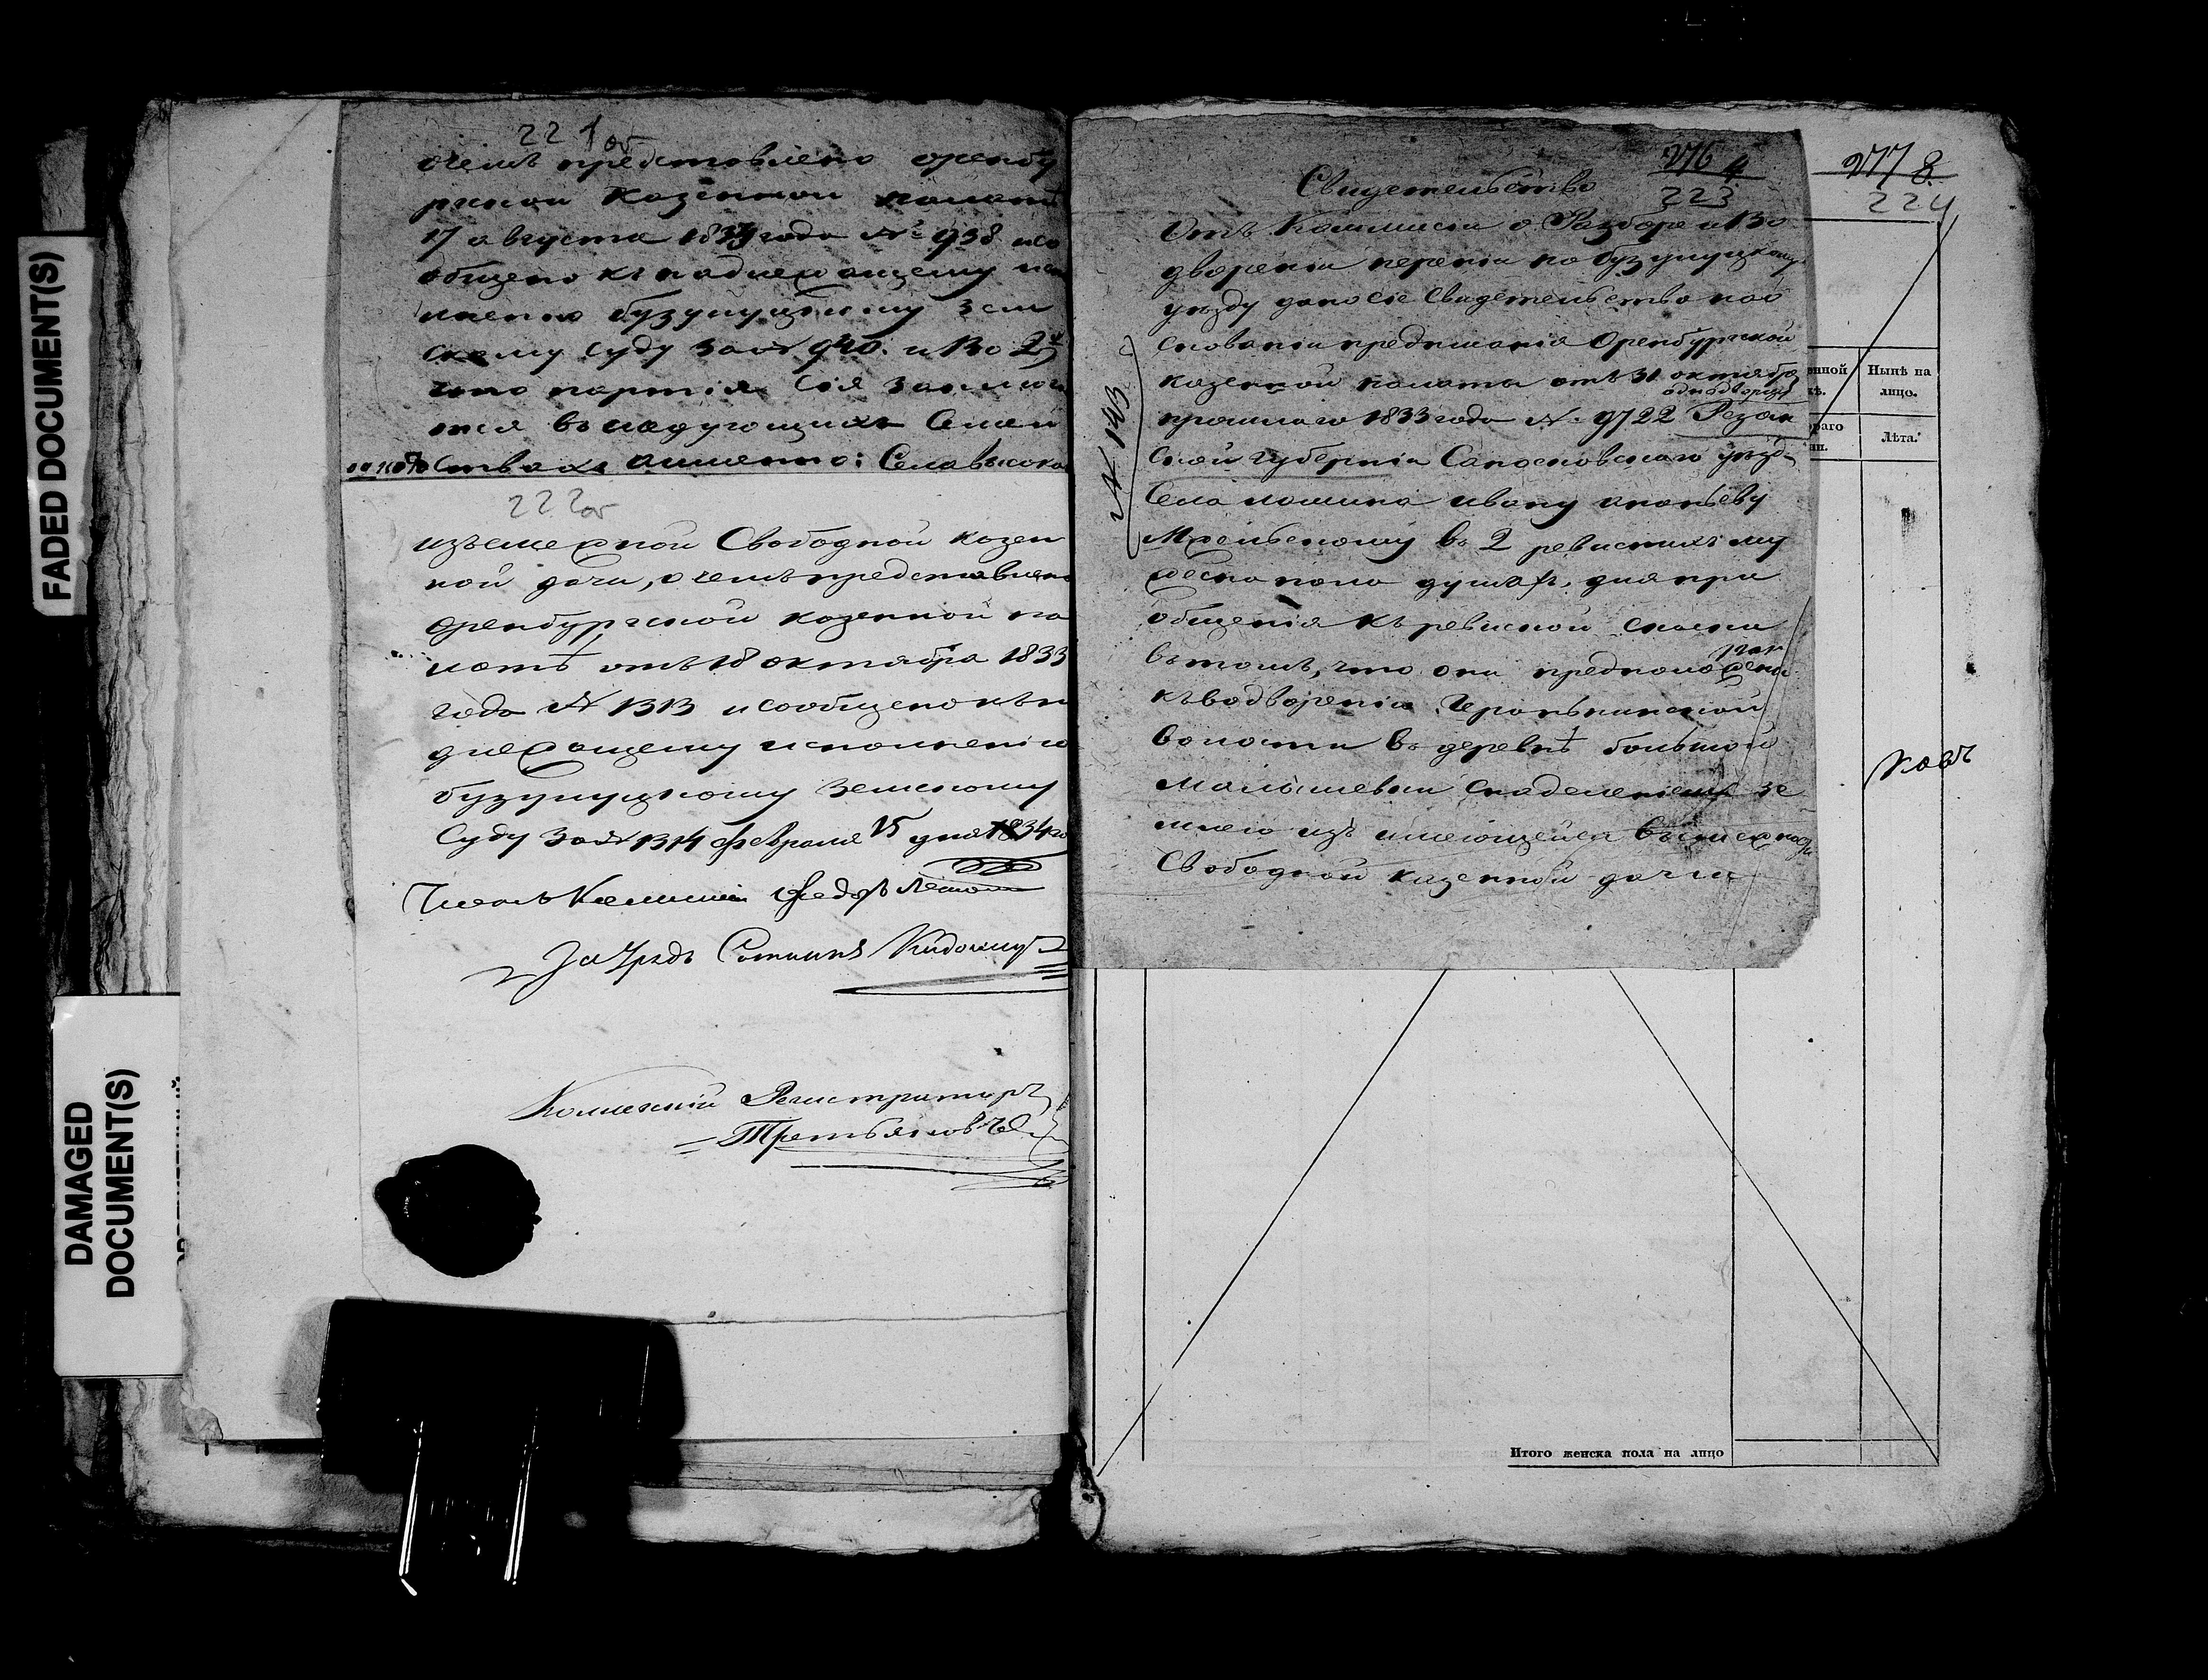 FADED DOCUMENT(S)
DAMAGED
DOCUMENT(S)
221 об
очемъ представлено оренбу
ргской казенной палатѣ
17 августа 1833 года № 938 исо
общено къ надлежащему испо
лнению бузулуцкому зем
скому суду за № 940. и во 2х
что партія сія заклю
тся въ следующихъ Семей
ствахъ аименно: Села высока
222 об
изъ смежной Свободной казен
ной дачи, очемъ представлено
Оренбургской казенной па
латѣ отъ 18 октября 1833
года № 1313 и сообщено къ на
длежащему исполнению
бузулуцкому Земскому
Суду за № 1314 февраля 15 дня 1834 го
Членъ Комисіи Федоръ
Сотникъ
Колежскій Регистраторъ
Третьяковъ
276 4
223
Свидетельство
Отъ Коммисіи о Разборе и Во
дворении перепи по бузулуцкому
уѣзду дано сіе Свидетельство на о
сновании предписанія Оренбургской
казенной палаты отъ 31 октября
однодворцу
прошлаго 1833 года № 9722 Резан
ской губерніи Сапожковского уѣзд
Села можина ивану ананьеву
въ 2 ревистихъ му
жеска пола душахъ, для при
общения къ ревиской скаски
въ томъ, что они предположены
къ водворению
волости въ деревнѣ большой
малышевки снаделениемъ зе
млею изъ имеющейся въ смежнос
Свободной казенной дачи
№ 143
277 8
224
нной
Нынѣ на
лицо.
раго
Лѣта.
ковъ
Итого женска пола на лицо